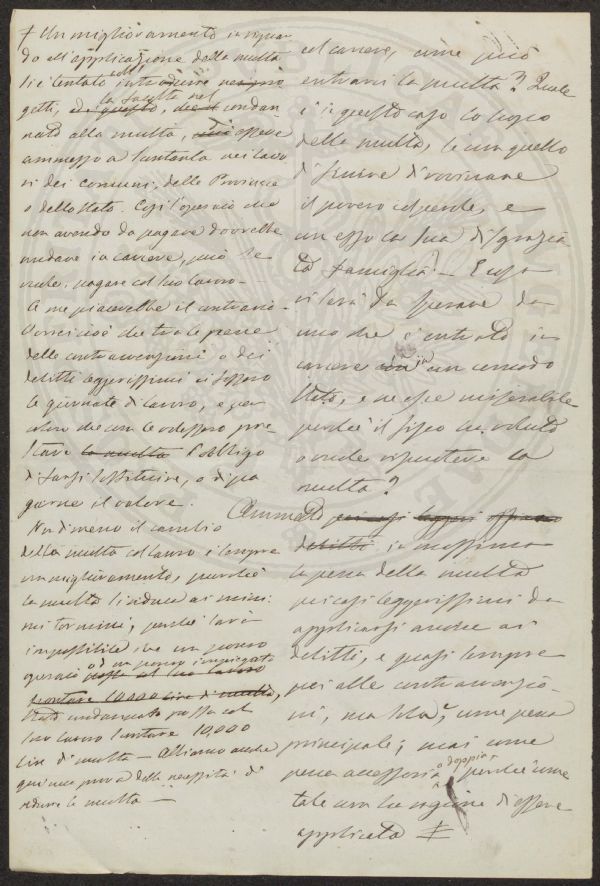 ‡ Un miglioramento in riguar
do all'applicazione della multa
si è tentato coll' introdurre
getti, la facoltà nel condan
nato alla multa, essere
ammesso a scontarla nei lavo
ri dei comuni, delle Provincie
o dello Stato. Così l'operaio che
non avendo da pagare dovrebbe
andare in carcere, può in
vece pagare col suo lavoro —
A me piacerebbe il contrario.
Vorrei cioè che tra le pene
delle contravvenzioni o dei
delitti leggerissimi ci fossero
le giornate di lavoro, e per
coloro che non le volessero pre
stare la multa l'obbligo
di farsi sostituire, o di pa
garne il valore.
Nondimeno il cambio
della multa col lavoro è sempre
un miglioramento, purché
la multa si riduca ai mini
mi termini, perché sarà
impossibile che un povero
operaio o d'un povero impiegato
possa col suo lavoro
scontare 10,000 lire di multa,
stato condannato possa col
suo lavoro scontare 10,000
lire di multa — Abbiamo anche
qui una prova della necessità di
ridurre la multa —
col carcere, come può
entrarvi la multa? Quale
è in questo caso lo scopo
della multa, se non quello
di finire di rovinare
il povero colpevole, e
con esso la sua disgrazia
ta famiglia? — E cosa
vi sarà da sperare da
uno che è entrato in
carcere con in un comodo
stato, e ne esce miserabile
perché il fisco ha voluto
anche riscuotere la
multa?
Ammatto pei casi leggeri
delitti in massima
la pena della multa
pei casi leggerissimi da
applicarsi anche ai
delitti, e quasi sempre
poi alle contravvenzio
ni, ma sola, come pena
principale; mai come
pena accessoria o doppia, perché come
tale non ha ragione di essere
applicata ‡